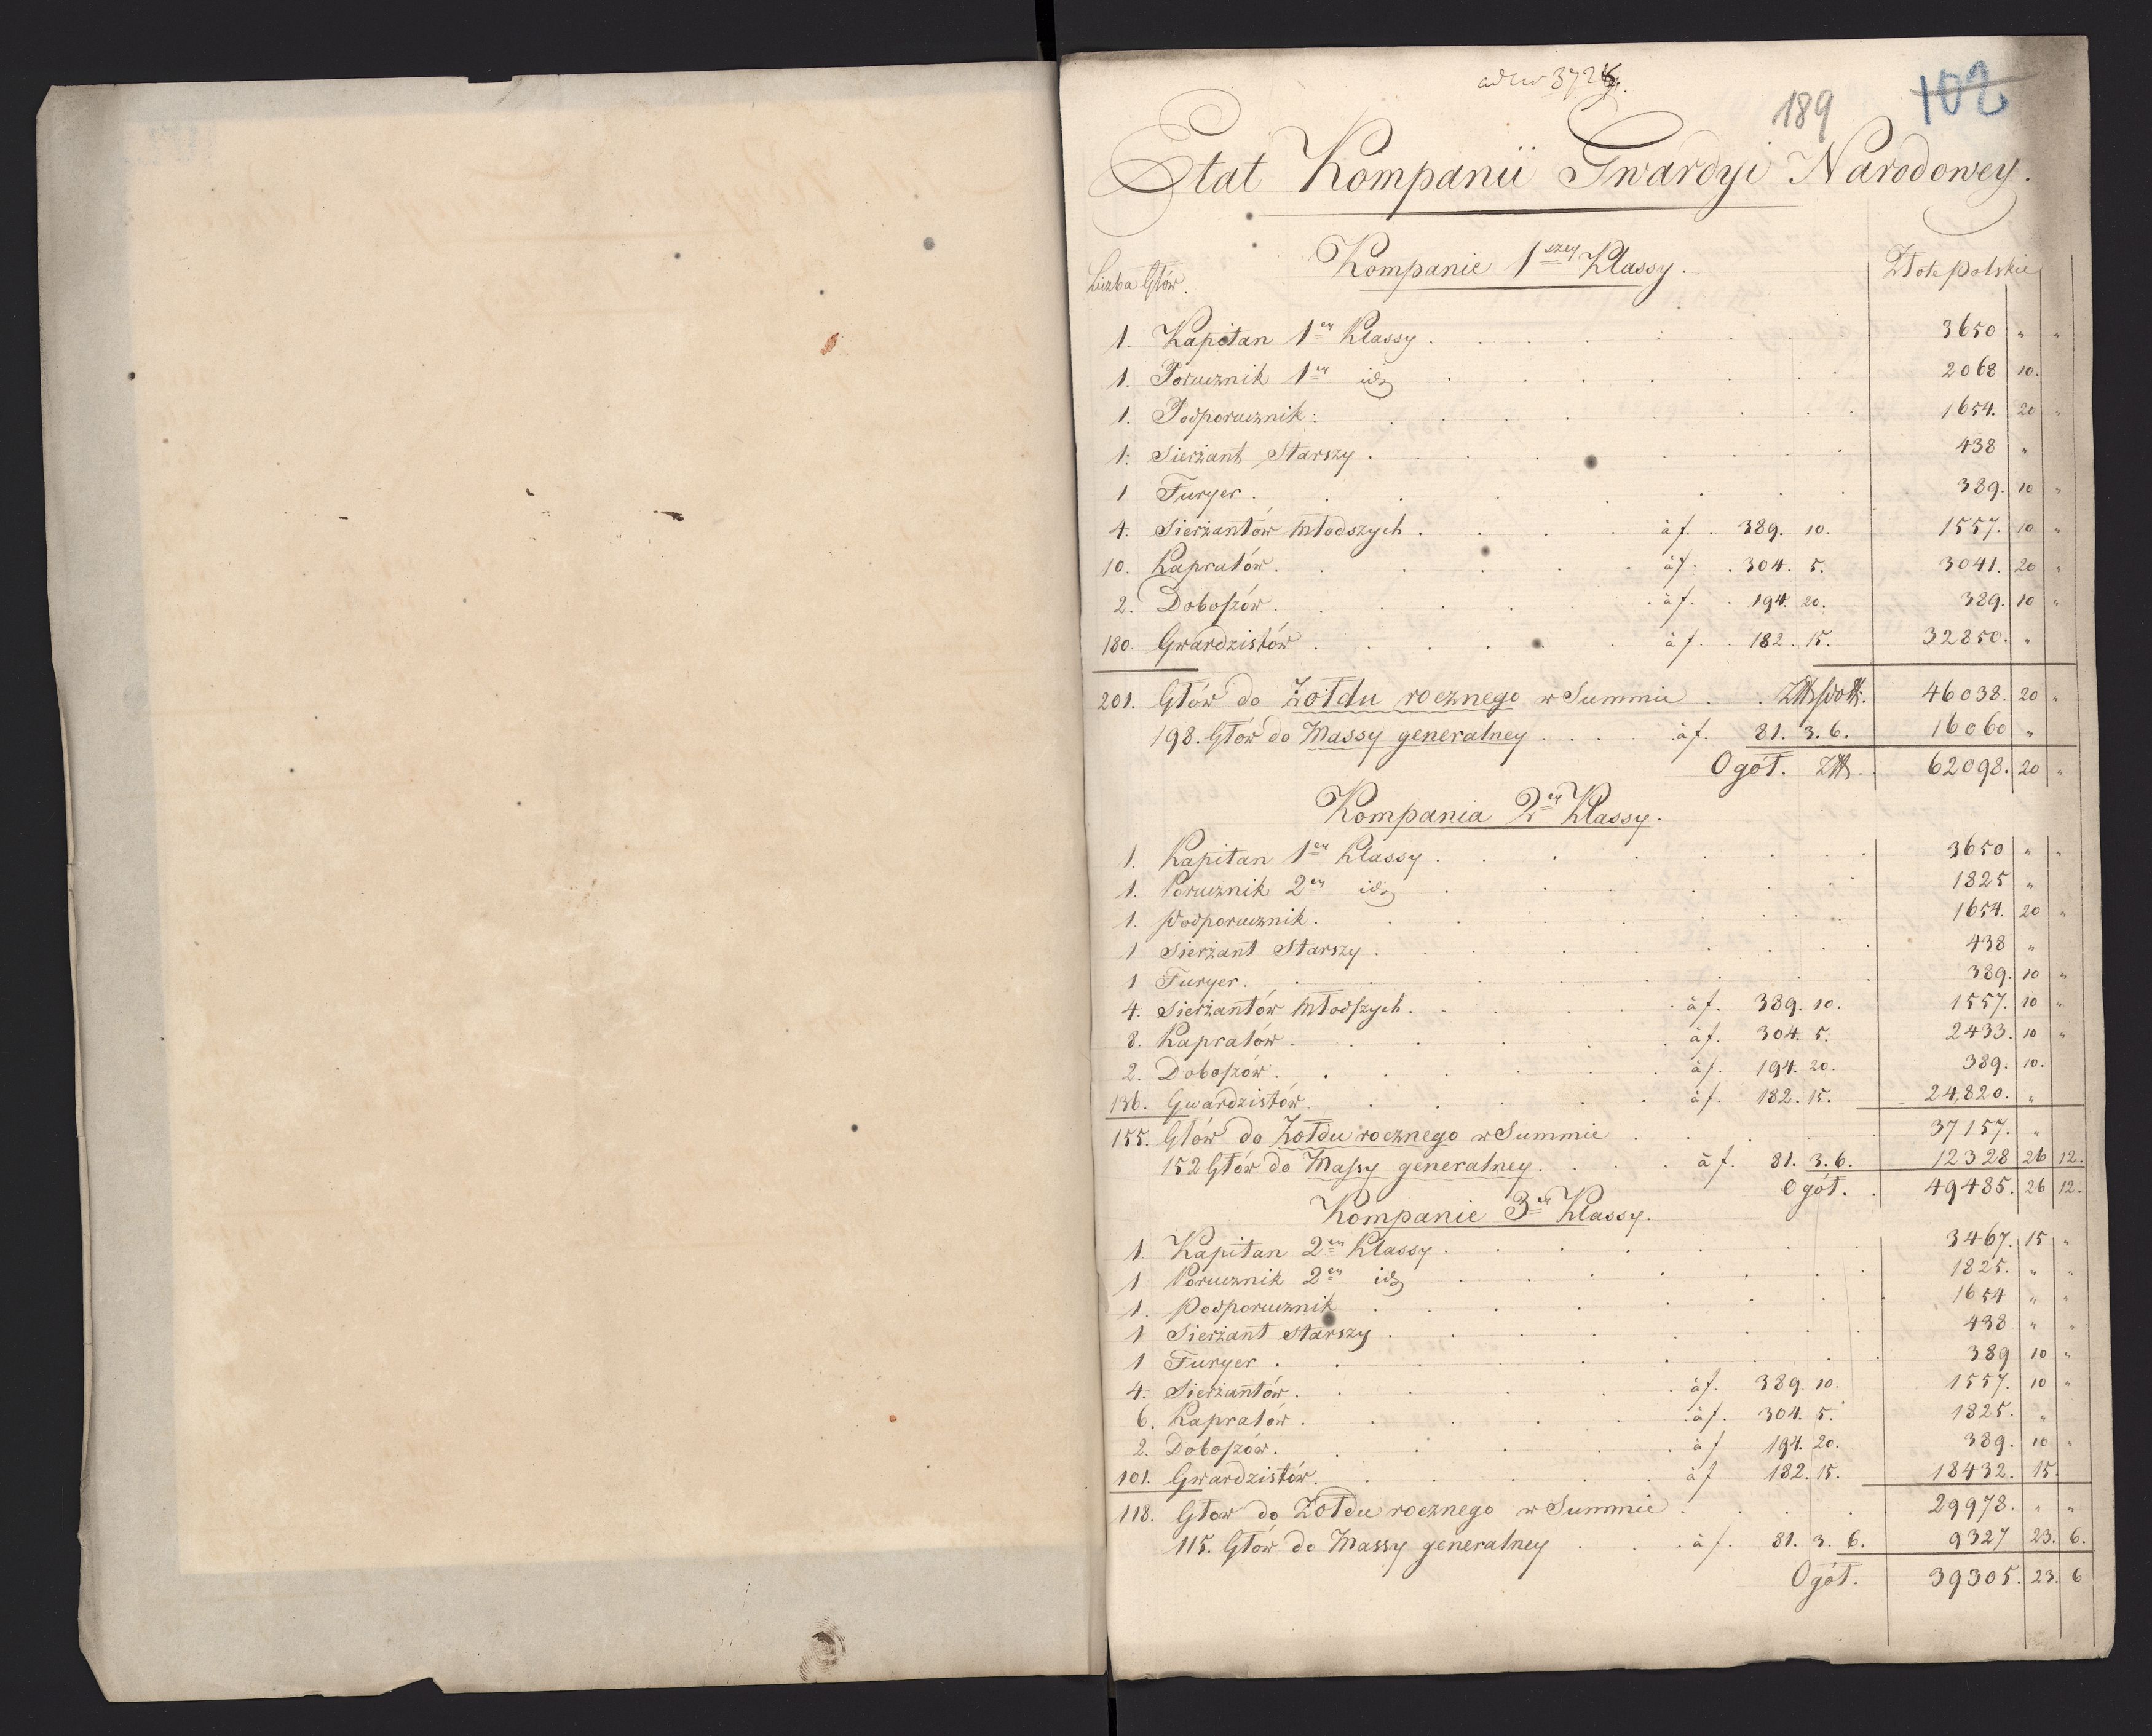 189
102
Etat Kompanii Gwardyi Narodowey.
Liczba Głów.
Kompanie 1szey Klassy.
Złote polskie
1. Kapitan 1ey Klassy . 3650 " "
1. Porucznik 1ey id . 2068 10.
1. Podporucznik: . 1654. 20 "
1: Sierżant Starszy . 438 "
1 Furyer . 389. 10 "
4. Sierżantów młodszych . à f. 389. 10. 1557. 10 "
10. Kapralów . à f. 304. 5. 3041. 20 "
2. Doboszów . à f. 194. 20. 389. 10 "
180. Gwardzistów . à f. 182. 15. 32850. "
201. Głów do Żołdu rocznego w Summie . 46038. 20 "
198. Głow do Massy generalney . à f. 81. 3. 6. 16060 "
Ogół. Złł. 62098. 20 "
Kompania 2ey Klassy.
1. Kapitan 1ey Klassy . 3650 " "
1. Porucznik 2ey id . 1825 "
1. Podporucznik . 1654. 20 "
1 Sierżant Starszy . 438 "
1 Furyer . 389. 10 "
4. Sierżantów Młodszych . à f. 389. 10. 1557. 10 "
8. Kapralów . à f. 304. 5. 2433. 10 "
2. Doboszów . à f. 194. 20. 389. 10.
136. Gwardzistów . à f. 182. 15. 24,820. "
155. Głów do Żołdu rocznego w Summie . 37157. "
152 Głów do Massy generalney . à f. 81. 3. 6. 12328 26 12.
Ogół. 49485. 26 12.
Kompanie 3ey Klassy.
1. Kapitan 2ey Klassy . 3467. 15 "
1 Porucznik 2ey id . 1825. " "
1. Podporucznik . 1654 " "
1 Sierżant starszy . 438 " "
1 Furyer . 389 10 "
4. Sierżantów . à f. 389. 10. 1557. 10 "
6. Kapralów . à f. 304. 5. 1825. "
2. Doboszów . à f 194. 20. 389. 10 "
101. Gwardzistów . à f 182. 15. 18432. 15.
118. Głow do Żołdu rocznego w Summie . 29978. " "
115. Głów do Massy generalney . à f. 81. 3. 6. 9327 23. 6.
Ogół. 39305. 23. 6